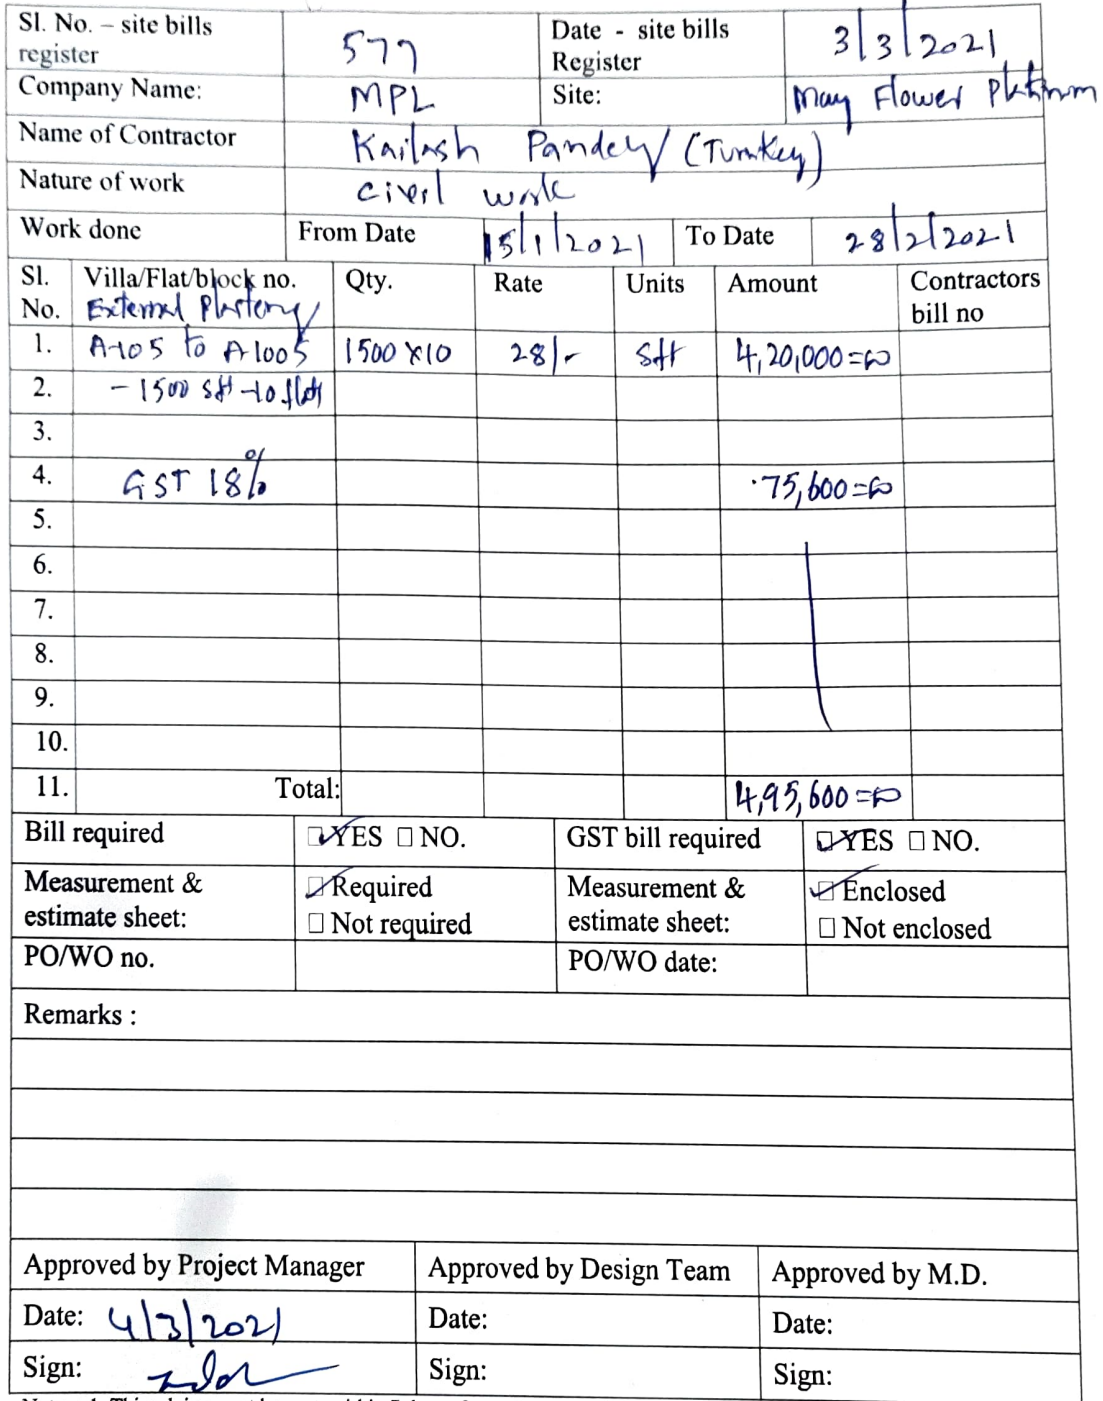 Sl. No. – site bills register 577 Date - site bills Register 3/3/2021
Company Name: MPL Site: May Flower Platinum
Name of Contractor Kailash Pandey (Turnkey)
Nature of work civil work
Work done From Date 15/1/2021 To Date 28/2/2021
Sl. No. Villa/Flat/block no. Qty. Rate Units Amount Contractors bill no
External Plastering
1. A-105 to A-1005 1500 x10 28/- Sft 4,20,000=00
2. - 1500 sft -10 flats
3.
4. GST 18% 75,600=00
5.
6.
7.
8.
9.
10.
11. Total: 4,95,600=00
Bill required ☑YES ☐ NO. GST bill required ☑YES ☐ NO.
Measurement & estimate sheet: ☑Required Measurement & estimate sheet: ☑Enclosed
☐ Not required ☐ Not enclosed
PO/WO no. PO/WO date:
Remarks :
Approved by Project Manager Approved by Design Team Approved by M.D.
Date: 4/3/2021 Date: Date:
Sign: Sign: Sign: